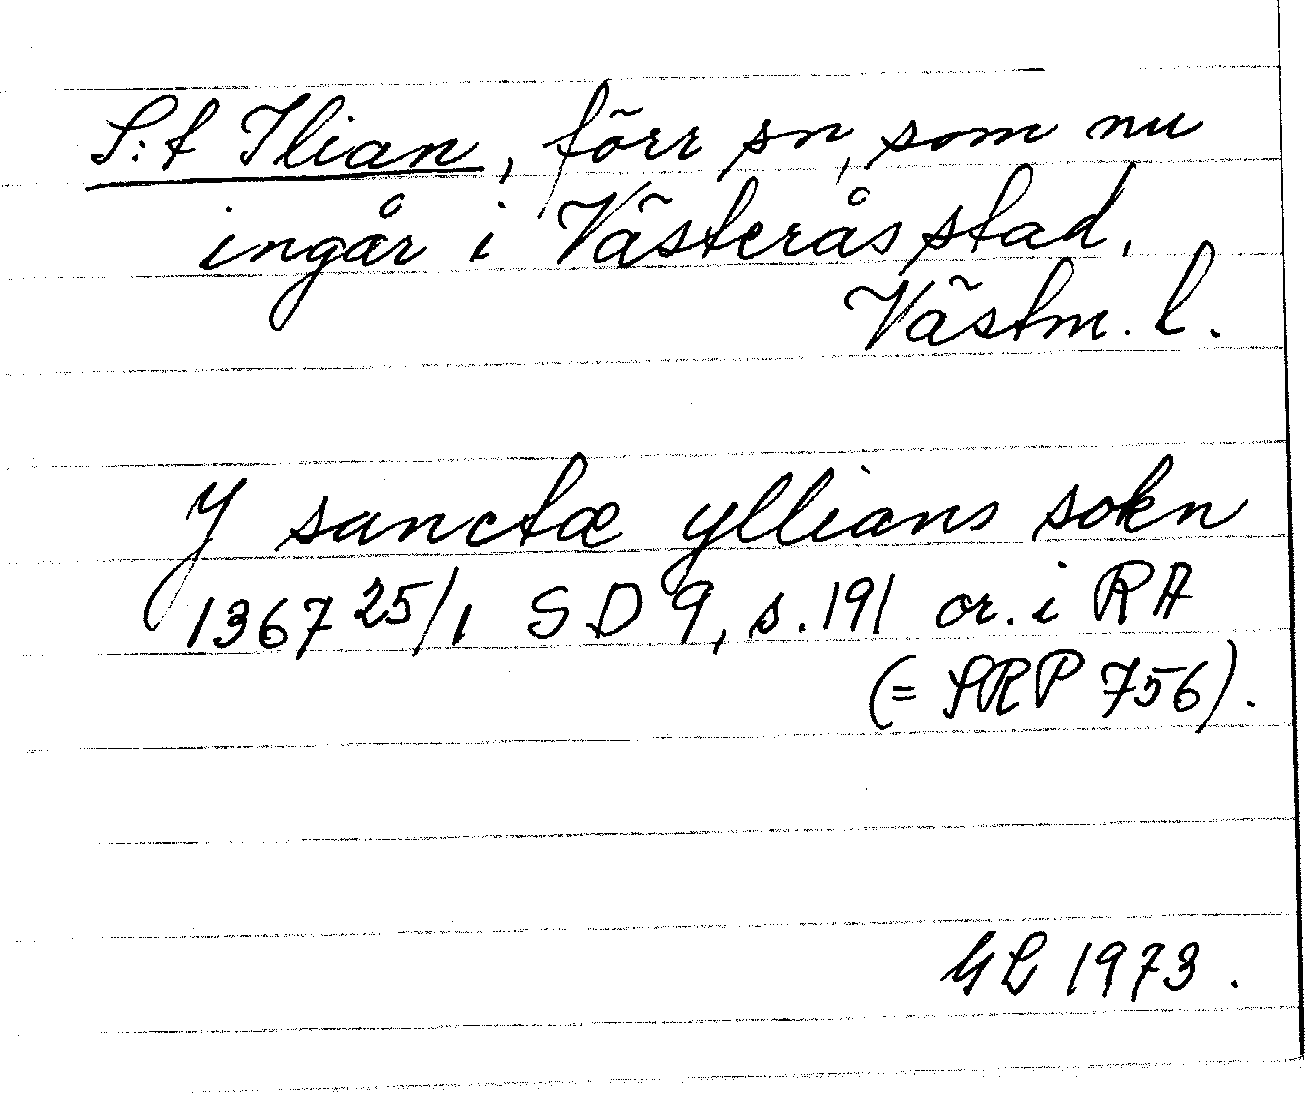 S:t Ilian, förr sn, som nu
ingår i Västerås stad,
Västm. l.
J sanctæ yllians sokn
1367 25/1 SD 9, s. 191 or. i RA
(= SRP 756).
GL 1973.